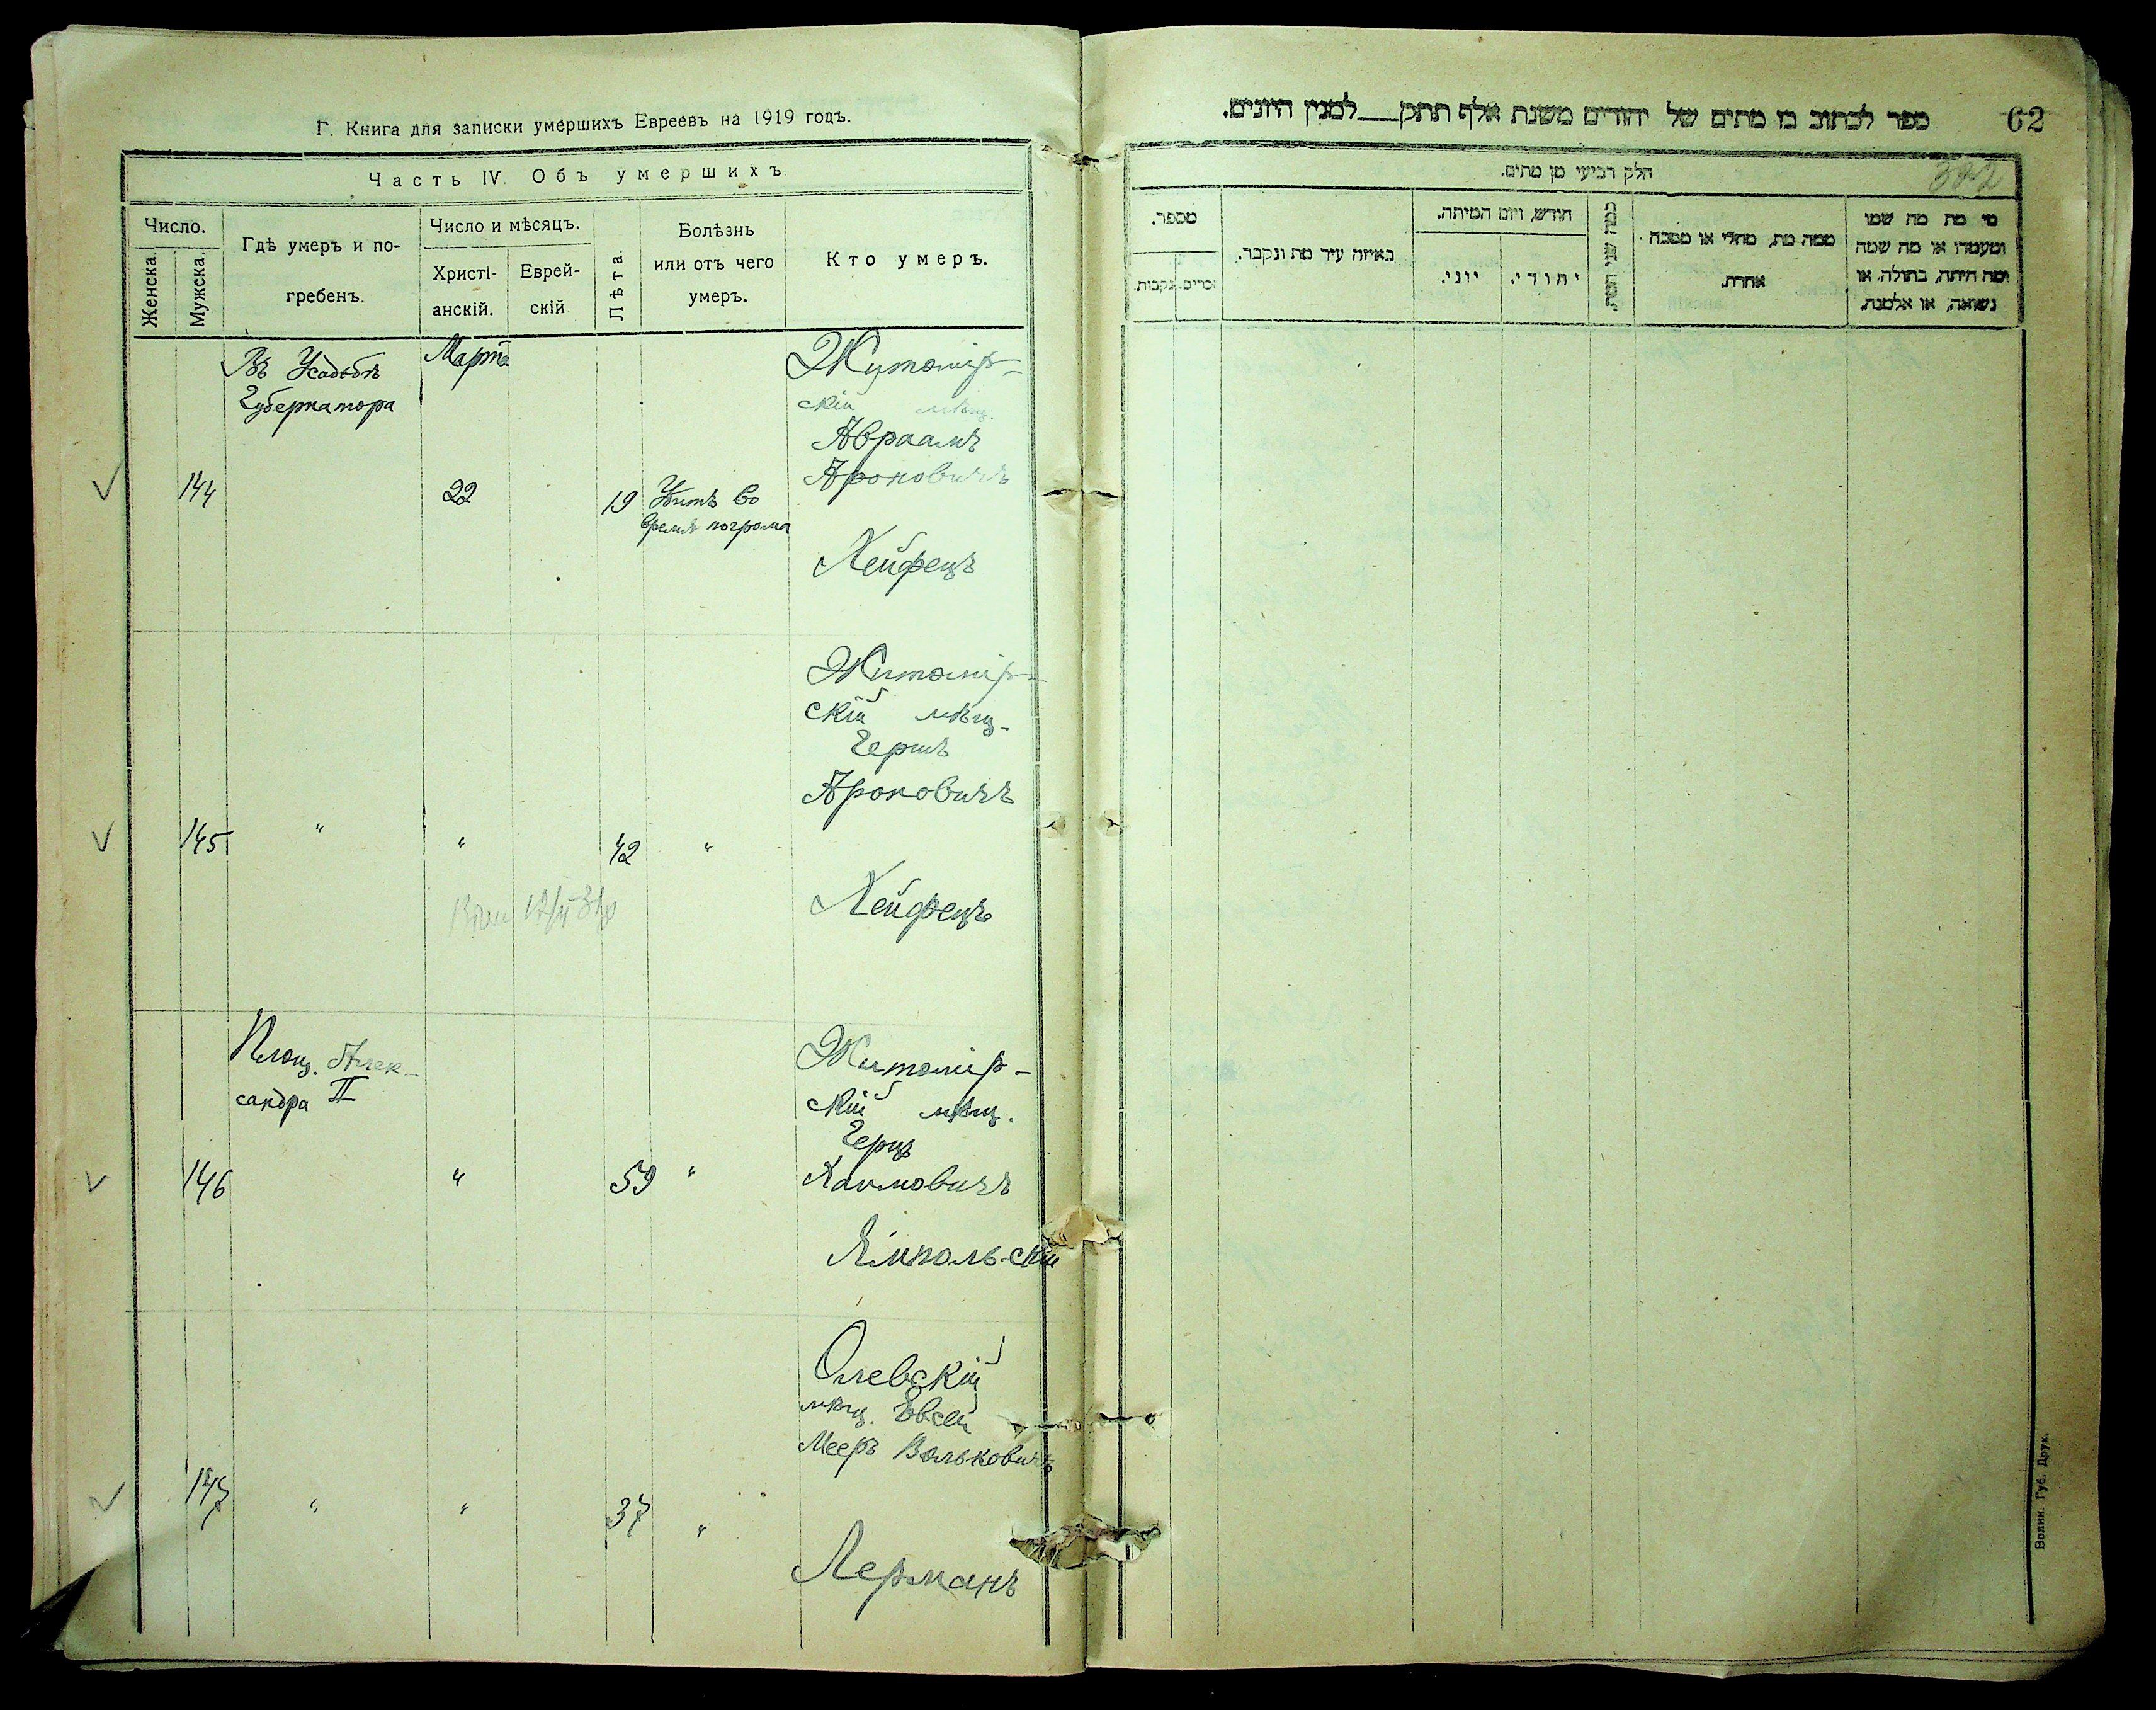 Г. Книга для записки умершихъ Евреевъ на 1919 годъ.
Часть IV. Объ умершихъ
Число.
Женска.
Мужска.
Гдѣ умеръ и по-
гребенъ.
Число и мѣсяцъ.
Христі-
анскій.
Еврей-
скій
Лѣта.
Болѣзнь
или отъ чего
умеръ.
Кто умеръ.
Въ Усадьбѣ
Губернатора
Марта
144
22
19
Убитъ во
время погрома
Житомір-
скій мѣщ.
Авраамъ
Ароновичъ
Хейфецъ
145 " " 42 "
Житомір-
скій мѣщ.
Гершъ
Ароновичъ
Хейфецъ
Площ. Алек-
сандра II
146 " 59 "
Житомір-
скій мѣщ.
Герцъ
Хаимовичъ
Ямпольскій
147 " " 37 "
Олевскій
мѣщ. Евсей
Мееръ Вольковичъ
Лерманъ
ספר לכתוב בו מתים של יהודים משנת אלף תתק__למנין היונים.
62
חלק רביעי מן מתים.
מספר.
זכרים.
נקבות.
באיזה עיר מת ונקבר.
חודש, ויום המיתה.
יוני.
יהודי.
כמה שני המת.
ממה מת, מחלי או מסבה
אחרת.
מי מת מה שמו
ומעמדו או מה שמה
ומה היתה, בתולה, או
נשואה, או אלמנה.
Волын. Губ. Друк.